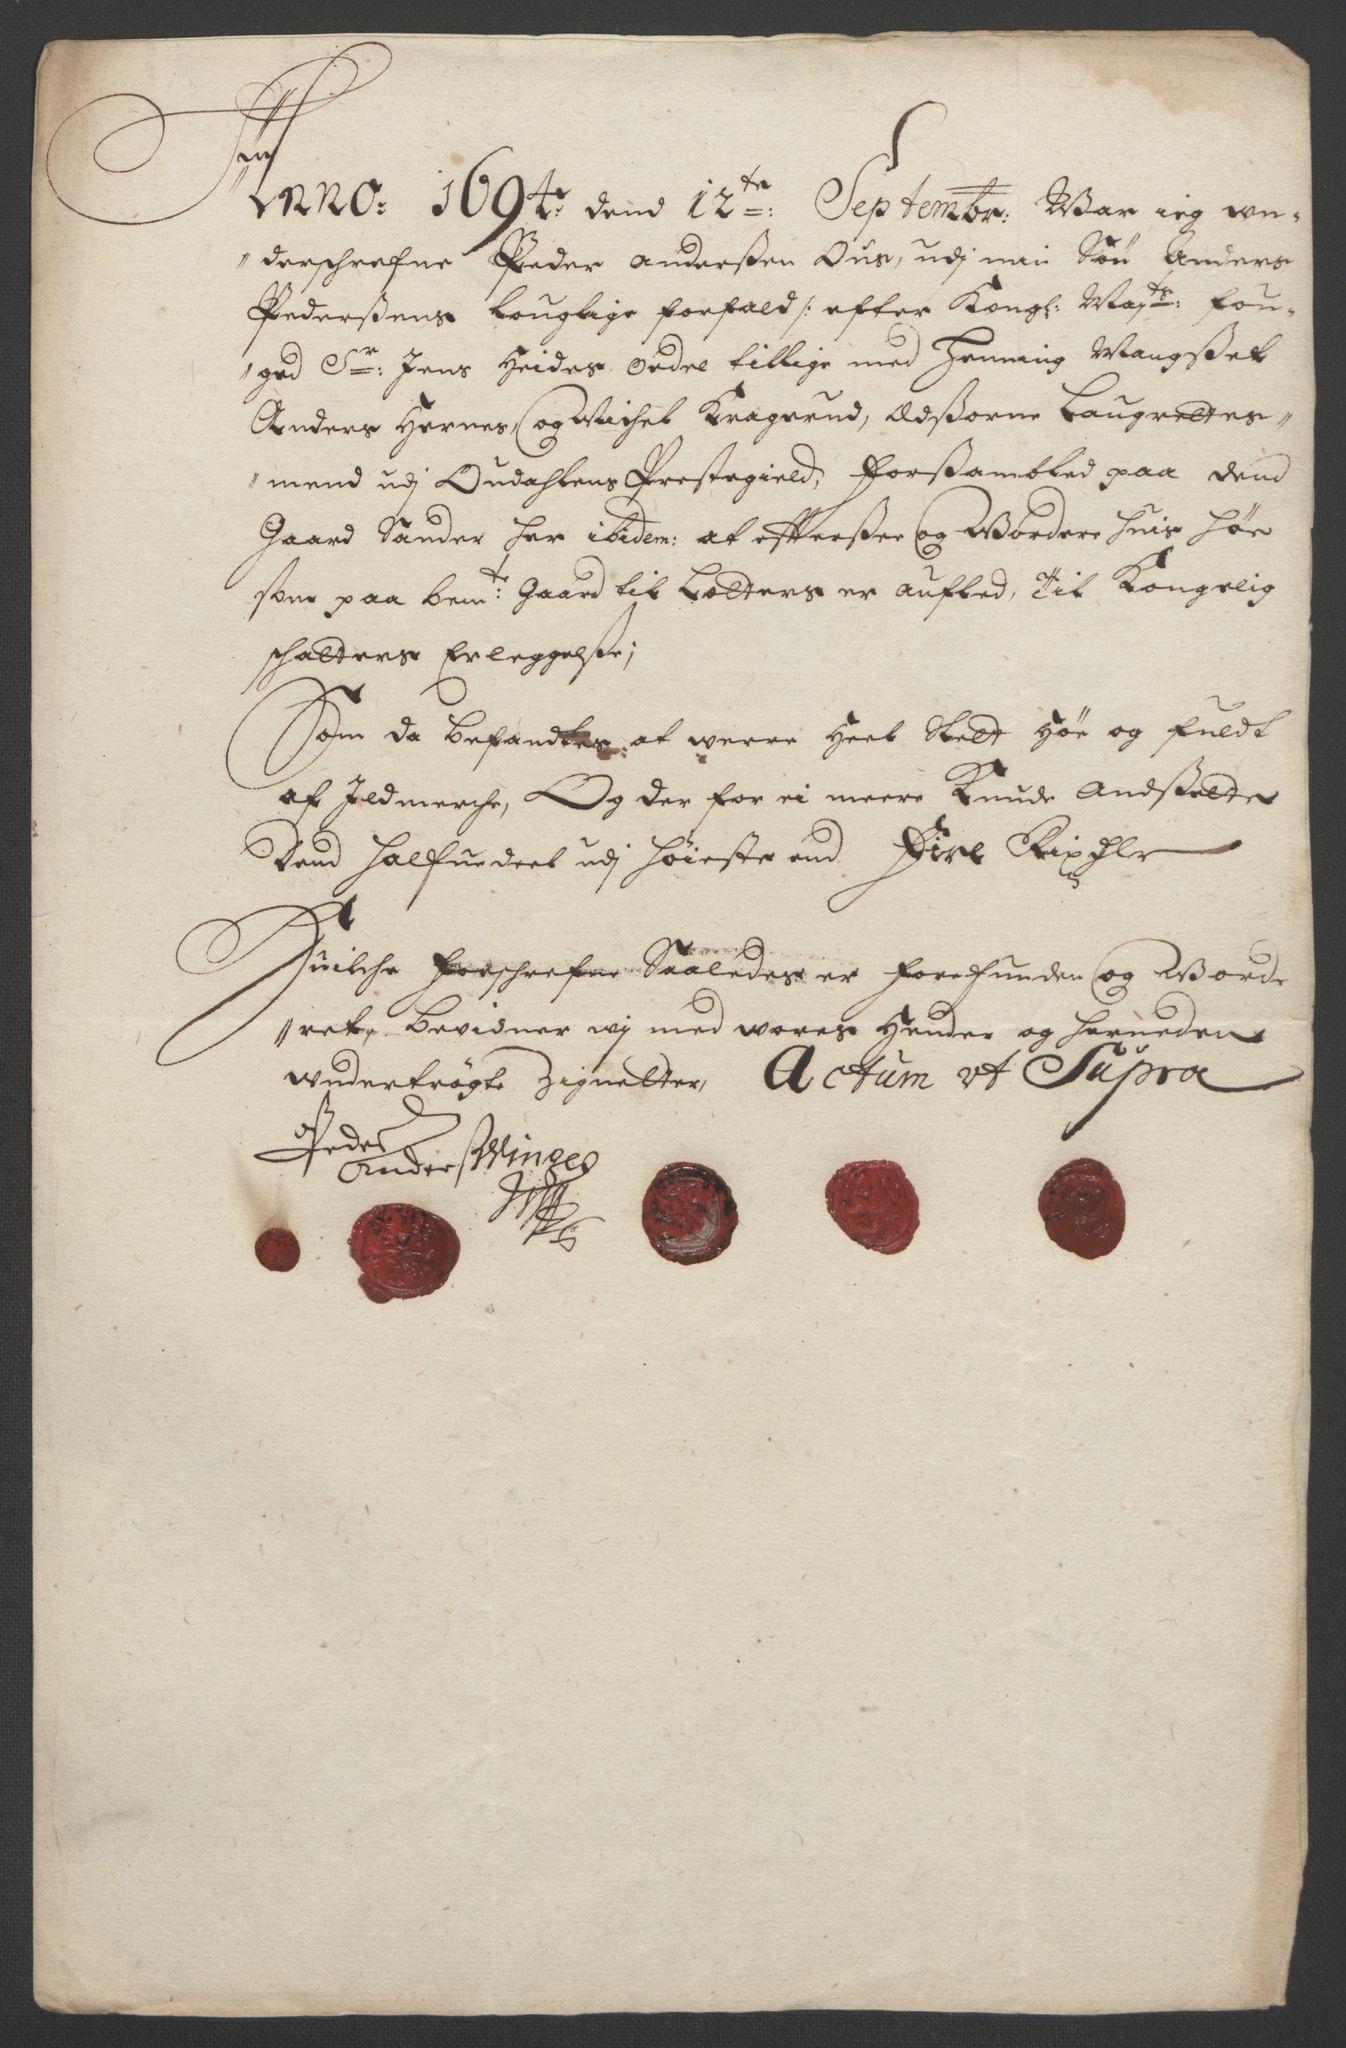 Anno: 1694: dend 12te: Septembr: War ieg wn-
derschrefne Peder anderßen Ous, udj min Søn Anders
Pederßens louglige forfald /: efter Kongl: Mayts: fou-
ged Sr: Jens Heides Ordel tillige med Henning Mangset
Anders Hernes, og Michel Kragerud, Edßorne Laugrettes-
mend udj Oudahlens Prestegield, forßambled paa dend
Gaard Sander her ibidem: at efterßee og Wordere huis høe
som paa bemt: Gaard til Lotters er aufled, Til Kongelig
schatters Erleggelße;
Som da befandtes at werre Heel slett Høe og fuldt
af Jldmerche, Og der for ei meere Kunde Andßette
dend halfuedeel udj høieste end Fire Rixdlr
Huilche forschrefne Saaledes er forefunden og Worde
ret, bevidner wj med wores Hender og herneden
wndertrøgte Zignetter, Actum ut Supra
Peder
Anderß Winges